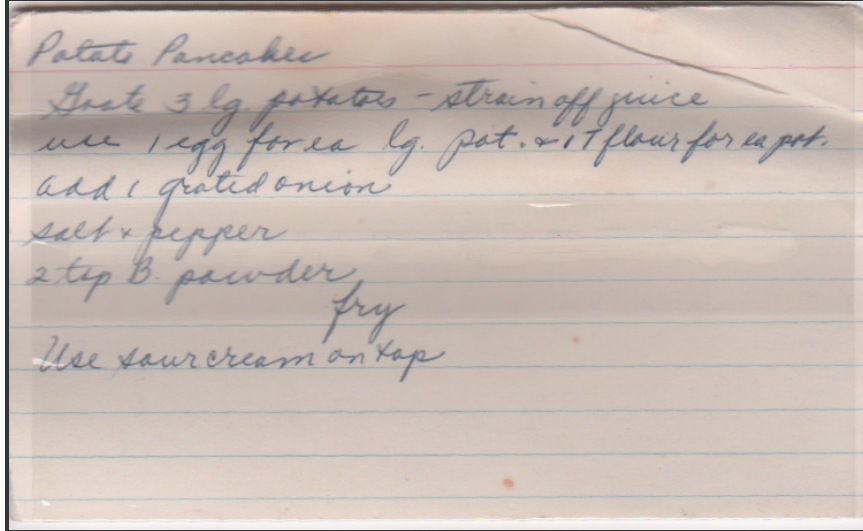 Potato Pancakes
Grate 3 lg potatoes - strain off juice
use 1 egg for ea lg. pot. & 1 T flour for ea pot.
add 1 grated onion
salt & pepper
2 tsp B. powder
fry
Use sour cream on top